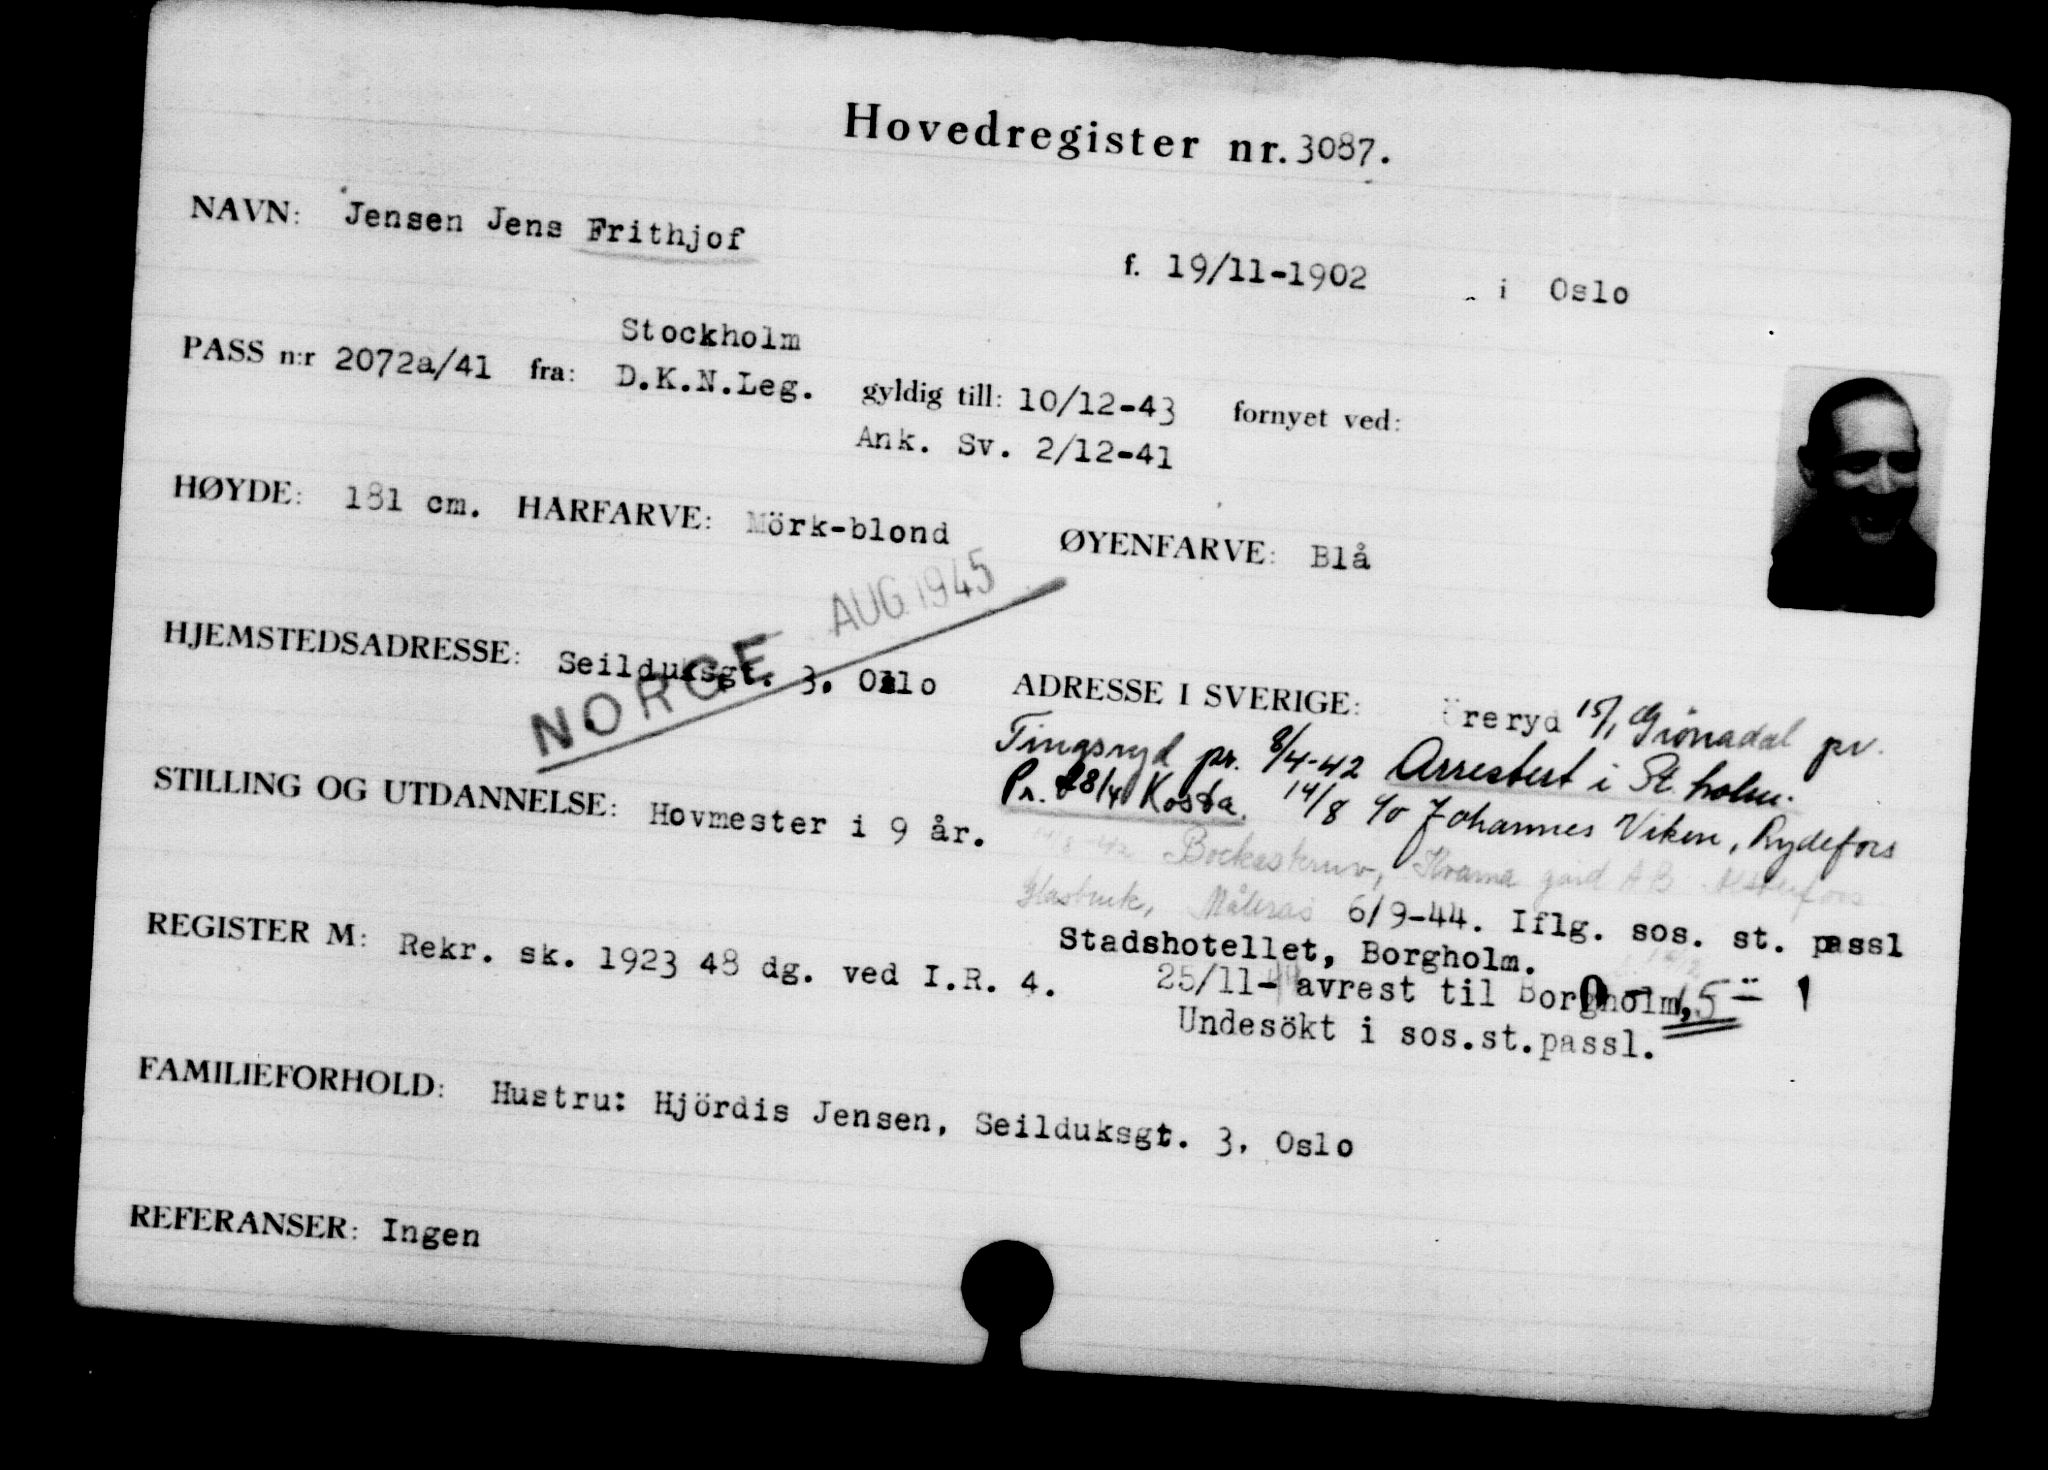 Hovedregister nr. 3087.
NAVN: Jensen Jens Frithjof
f. 19/11-1902 i Oslo
Stockholm
PASS n:r 2072a/41 fra: D.K.N.Leg. gyldig till: 10/12-43 fornyet ved:
Ank. Sv. 2/12-41
HØYDE: 181 cm. HÅRFARVE: Mörk-blond ØYENFARVE: Blå
AUG 1945
NORGE
HJEMSTEDSADRESSE: Seilduksgt. 3. Oslo
ADRESSE I SVERIGE: Öreryd 15/1 Grönadal pr.
Tingsryd pr. 8/4-42 Arrestert i St.holm.
Pr. 28/4 Kosta. 14/8 c/o Johannes Viken, Rydefors
STILLING OG UTDANNELSE: Hovmester i 9 år.
gård AB
Glasbruk, Målerås 6/9-44. Iflg. sos. st. passl
Stadshotellet, Borgholm.
REGISTER M: Rekr. sk. 1923 48 dg. ved I.R. 4.
25/11-44 avrest til Borgholm,
Undesökt i sos.st.passl.
FAMILIEFORHOLD: Hustru: Hjördis Jensen, Seilduksgt. 3, Oslo
REFERANSER: Ingen